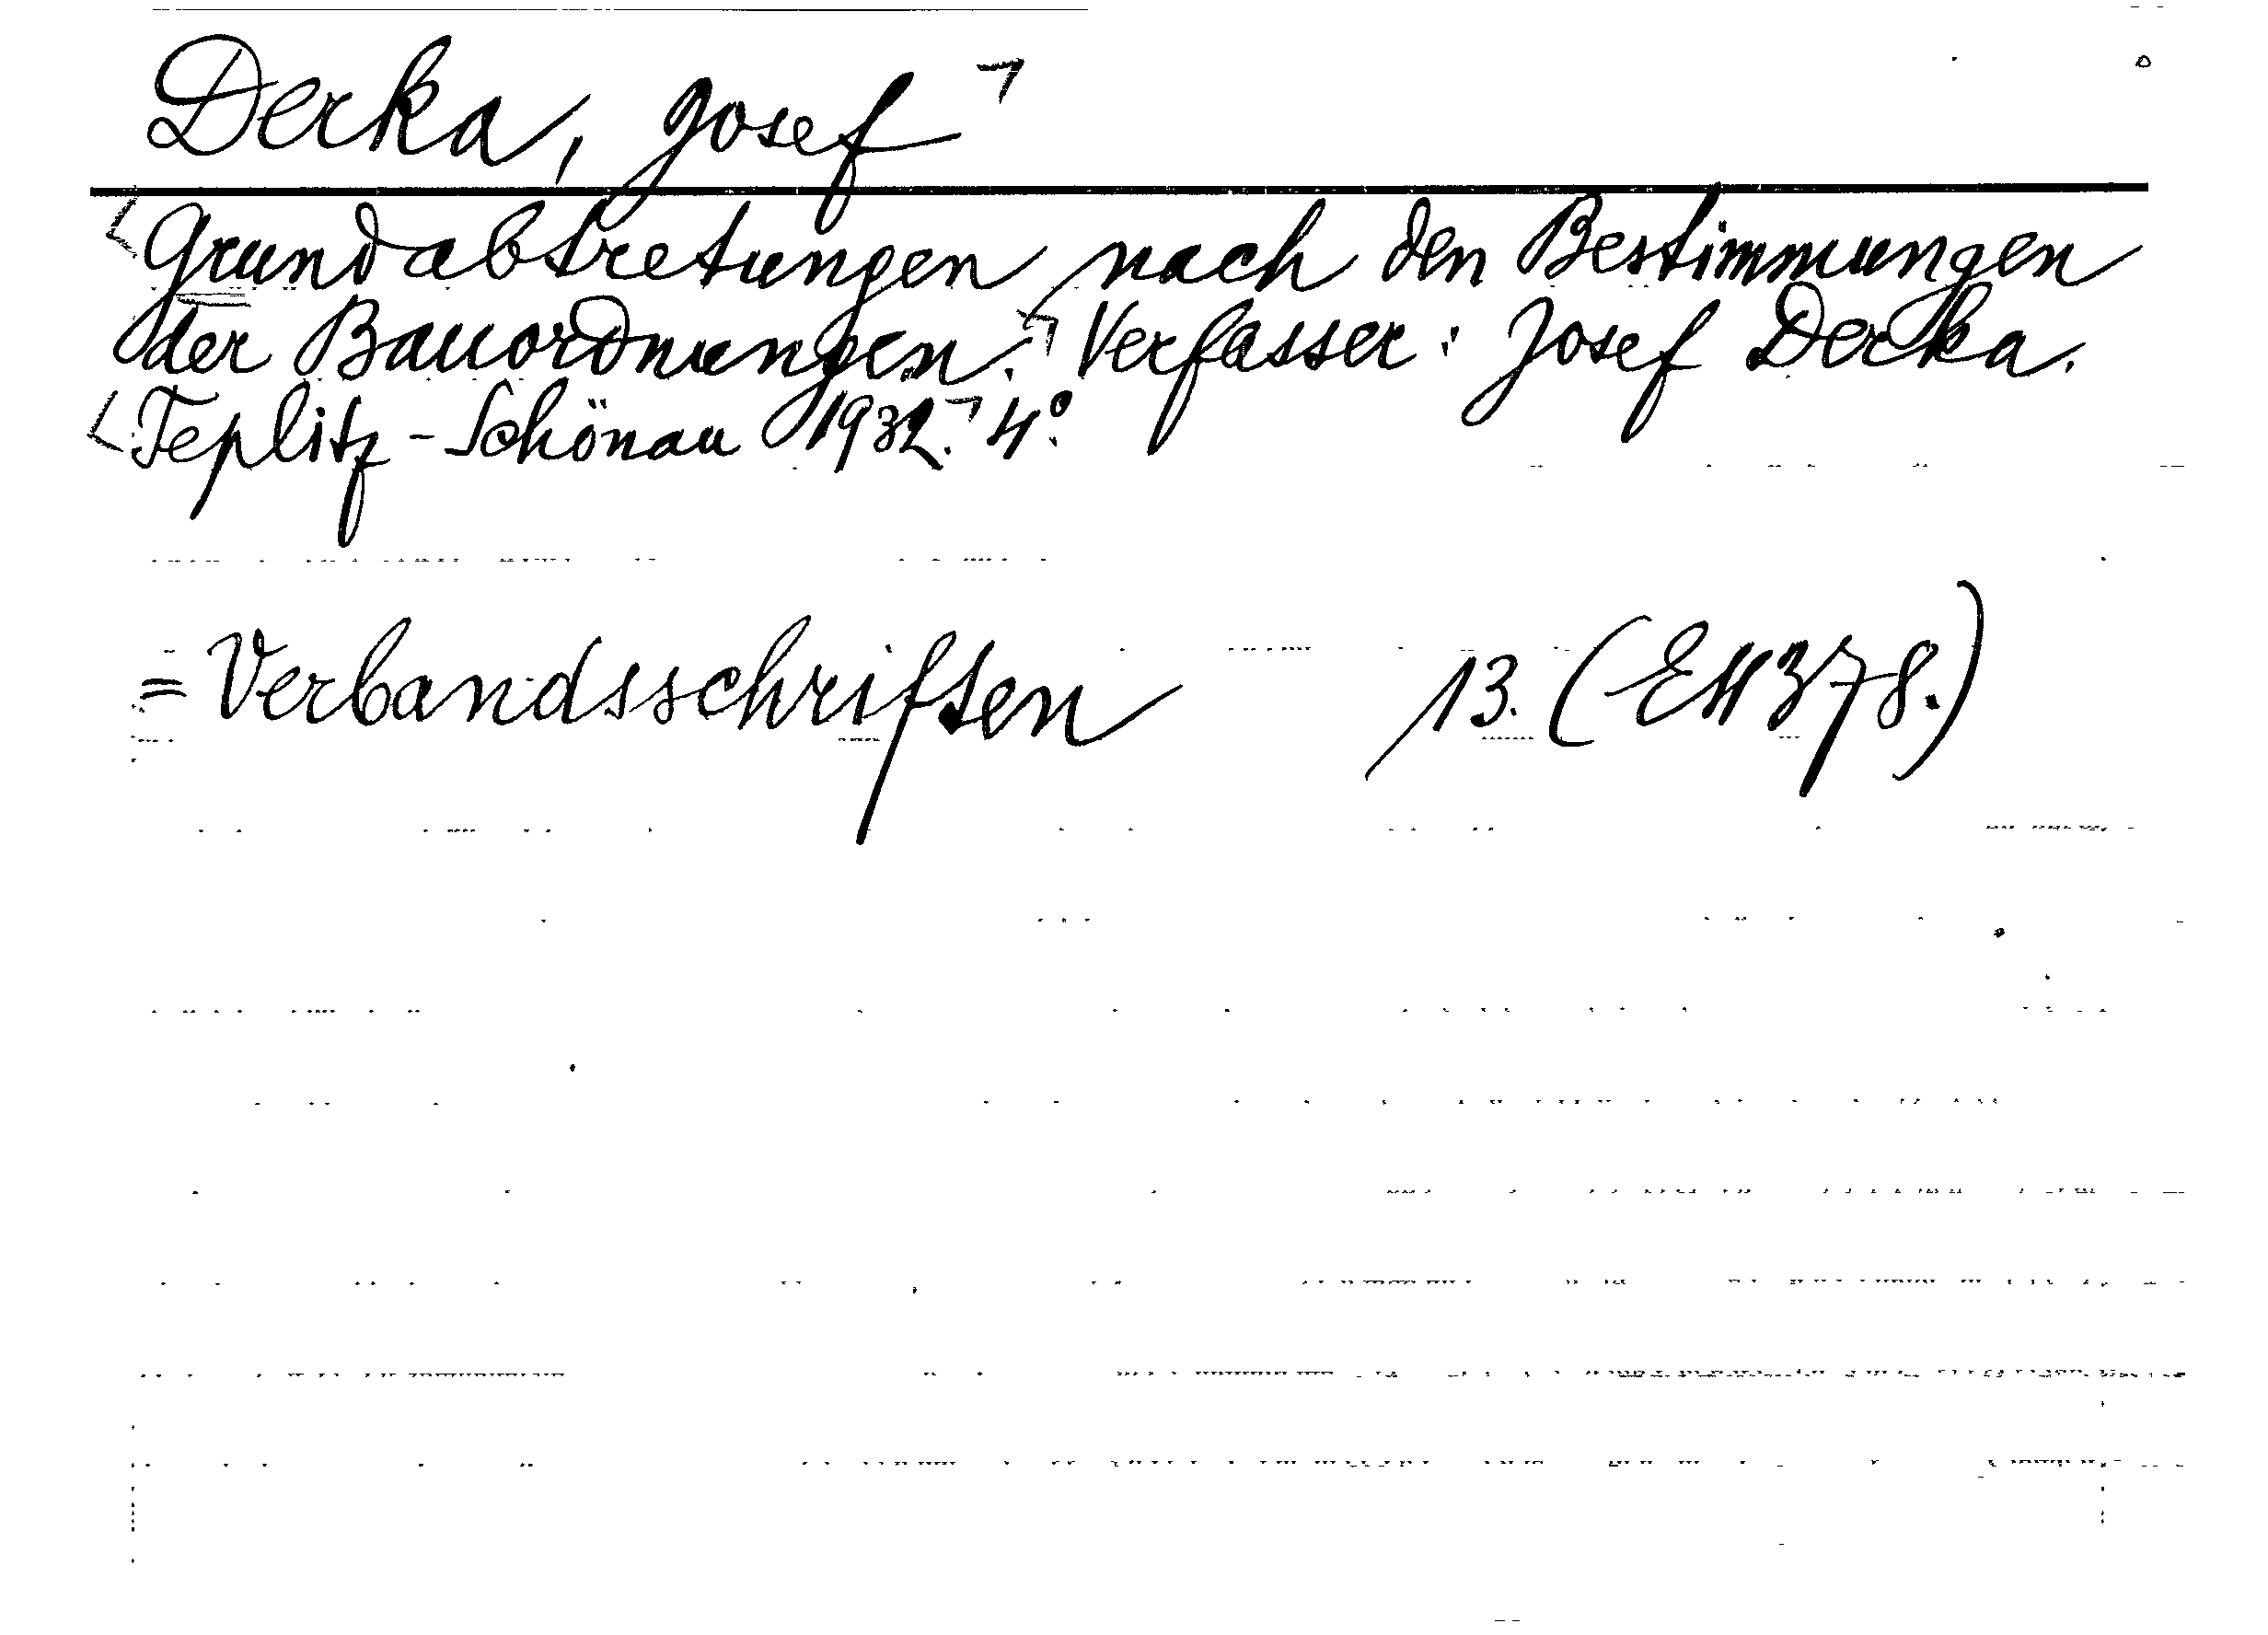 Derka, Josef
Grundabtretungen nach den Bestimmungen
der Bauordnungen. Verfasser: Josef Derka.
Teplitz-Schönau 1932. 4°.
= Verbandsschriften 13. (EH 378.)